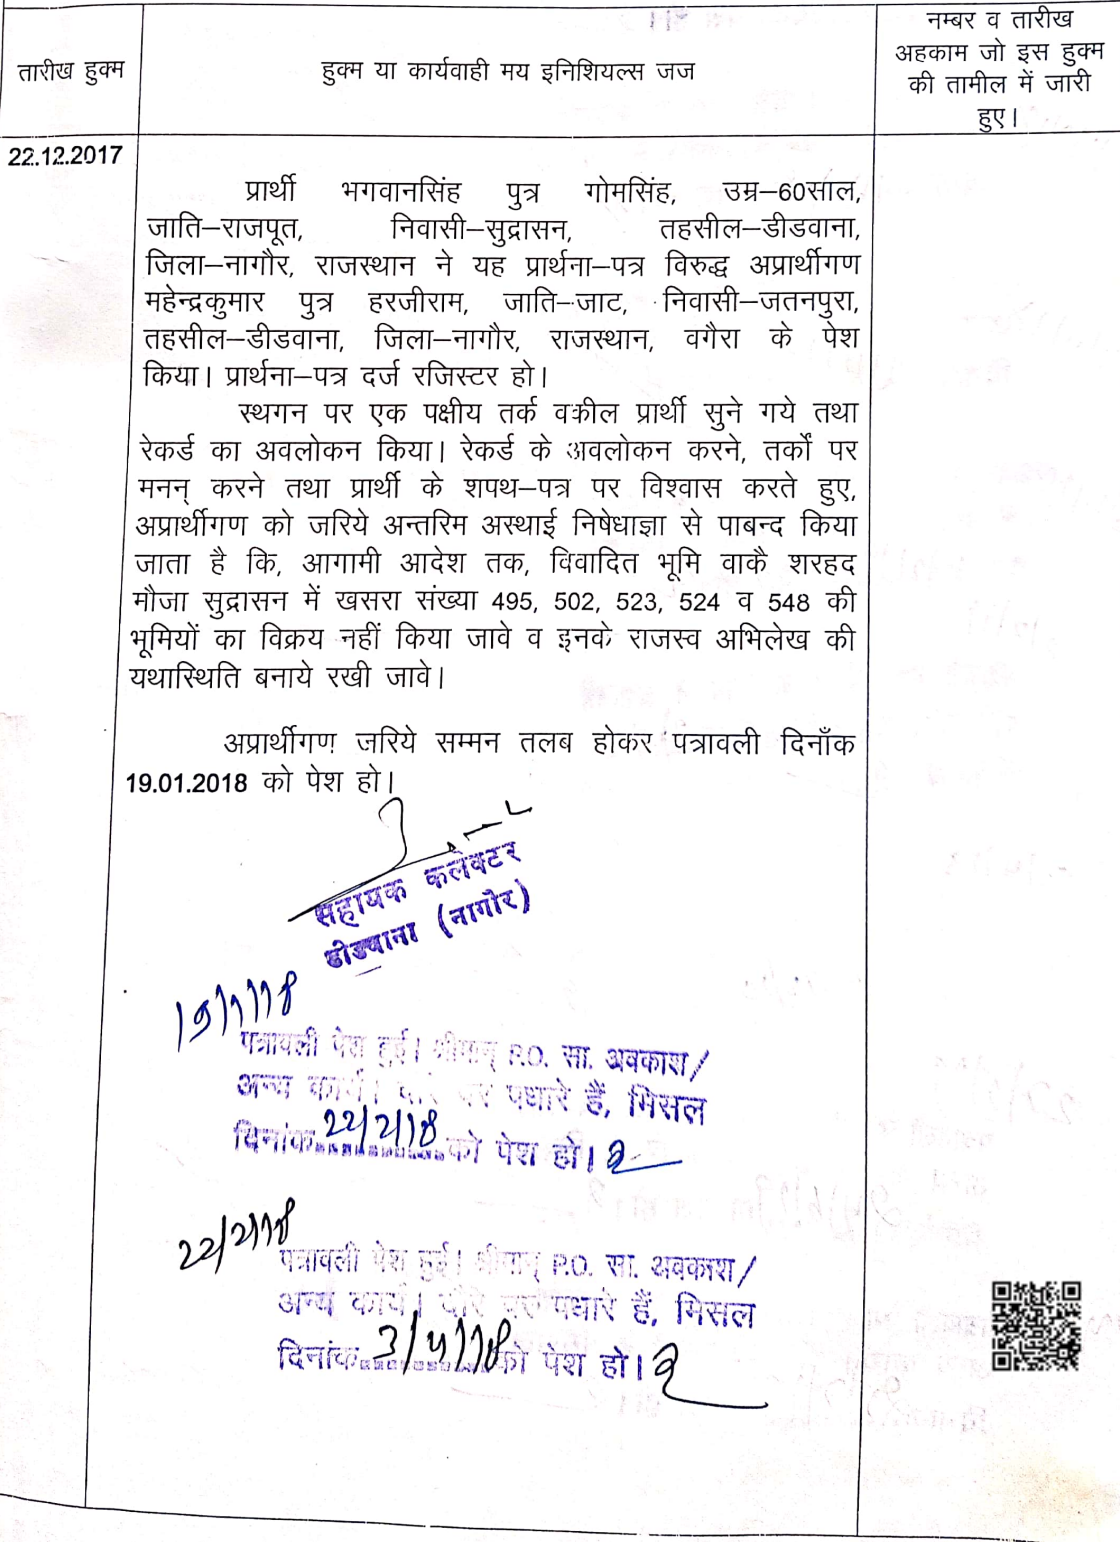 तारीख हुक्म
हुक्म या कार्यवाही मय इनिशियल्स जज
नम्बर व तारीख
अहकाम जो इस हुक्म
की तामील में जारी
हुए।
22.12.2017
प्रार्थी भगवानसिंह पुत्र गोमसिंह, उम्र–60साल,
जाति–राजपूत, निवासी–सुद्रासन, तहसील–डीडवाना,
जिला–नागौर, राजस्थान ने यह प्रार्थना–पत्र विरुद्ध अप्रार्थीगण
महेन्द्रकुमार पुत्र हरजीराम, जाति–जाट, निवासी–जतनपुरा,
तहसील–डीडवाना, जिला–नागौर, राजस्थान, वगैरा के पेश
किया। प्रार्थना–पत्र दर्ज रजिस्टर हो।
स्थगन पर एक पक्षीय तर्क वकील प्रार्थी सुने गये तथा
रेकर्ड का अवलोकन किया। रेकर्ड के अवलोकन करने, तर्कों पर
मनन् करने तथा प्रार्थी के शपथ–पत्र पर विश्वास करते हुए,
अप्रार्थीगण को जरिये अन्तरिम अस्थाई निषेधाज्ञा से पाबन्द किया
जाता है कि, आगामी आदेश तक, विवादित भूमि वाकै शरहद
मौजा सुद्रासन में खसरा संख्या 495, 502, 523, 524 व 548 की
भूमियों का विक्रय नहीं किया जावे व इनके राजस्व अभिलेख की
यथास्थिति बनाये रखी जावे।
अप्रार्थीगण जरिये सम्मन तलब होकर पत्रावली दिनाँक
19.01.2018 को पेश हो।
सहायक कलेक्टर
डीडवाना (नागौर)
19/1/18
पत्रावली पेश हुई। श्रीमान् P.O. सा. अवकाश/
अन्य कार्य। पर पधारे हैं, मिसल
दिनांक 22/2/18 को पेश हो।
22/2/18
पत्रावली पेश हुई। श्रीमान् P.O. सा. अवकाश/
अन्य कार्य। दौरे पर पधारे हैं, मिसल
दिनांक 3/4/18 को पेश हो।